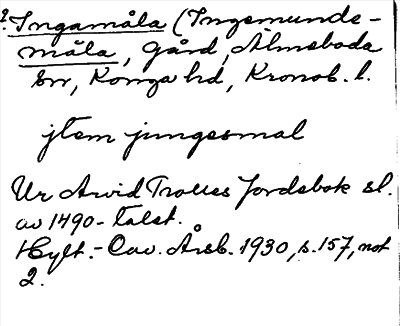 ? Ingamåla (Ingemunds-
måla, gård, Älmeboda
sn, Konga hd, Kronob. l.
jtem jungesmal
Ur Arvid Trolles Jordebok sl.
av 1490-talet.
Hylt.-Cav. Årsb. 1930, s. 157, not
2.